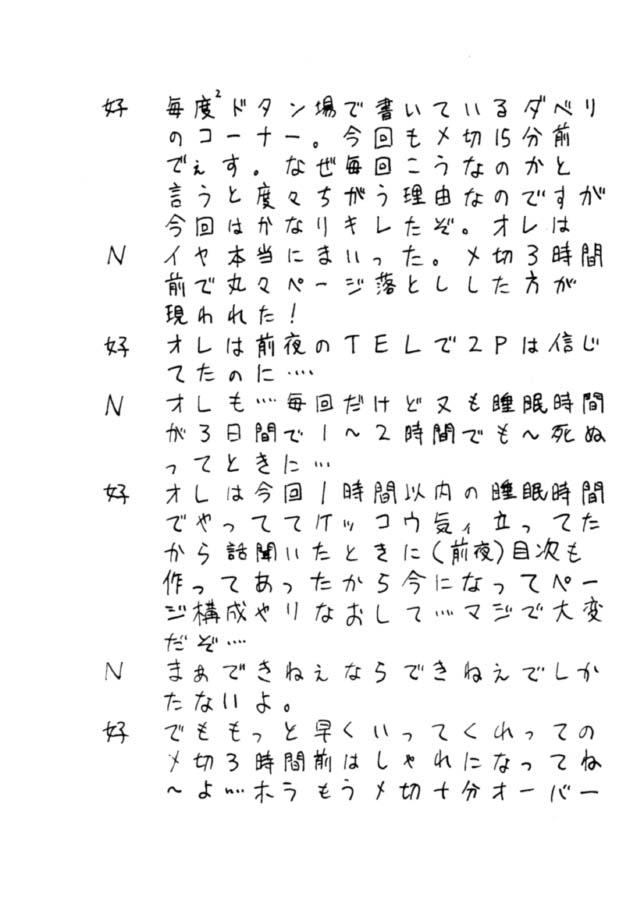 好 毎度²ドタン場で書いているダベリ
のコーナー。今回も〆切15分前
でぇす。なぜ毎回こうなのかと
言うと度々ちがう理由なのですが
今回はかなりキレたぞ。オレは
N イヤ本当にまいった。〆切3時間
前で丸々ページ落としした方が
現われた!
好 オレは前夜のTELで2Pは信じ
てたのに‥‥
N オレも…毎回だけど又も睡眠時間
が3日間で1〜2時間でも〜死ぬ
ってときに…
好 オレは今回1時間以内の睡眠時間
でやっててケッコウ気ィ立ってた
から話聞いたときに(前夜)目次も
作ってあったから今になってペー
ジ構成やりなおして‥‥マジで大変
だぞ‥‥
N まぁできねぇならできねぇでしか
たないよ。
好 でももっと早くいってくれっての
〆切3時間前はしゃれになってね
〜よ‥‥ホラもう〆切十分オーバー